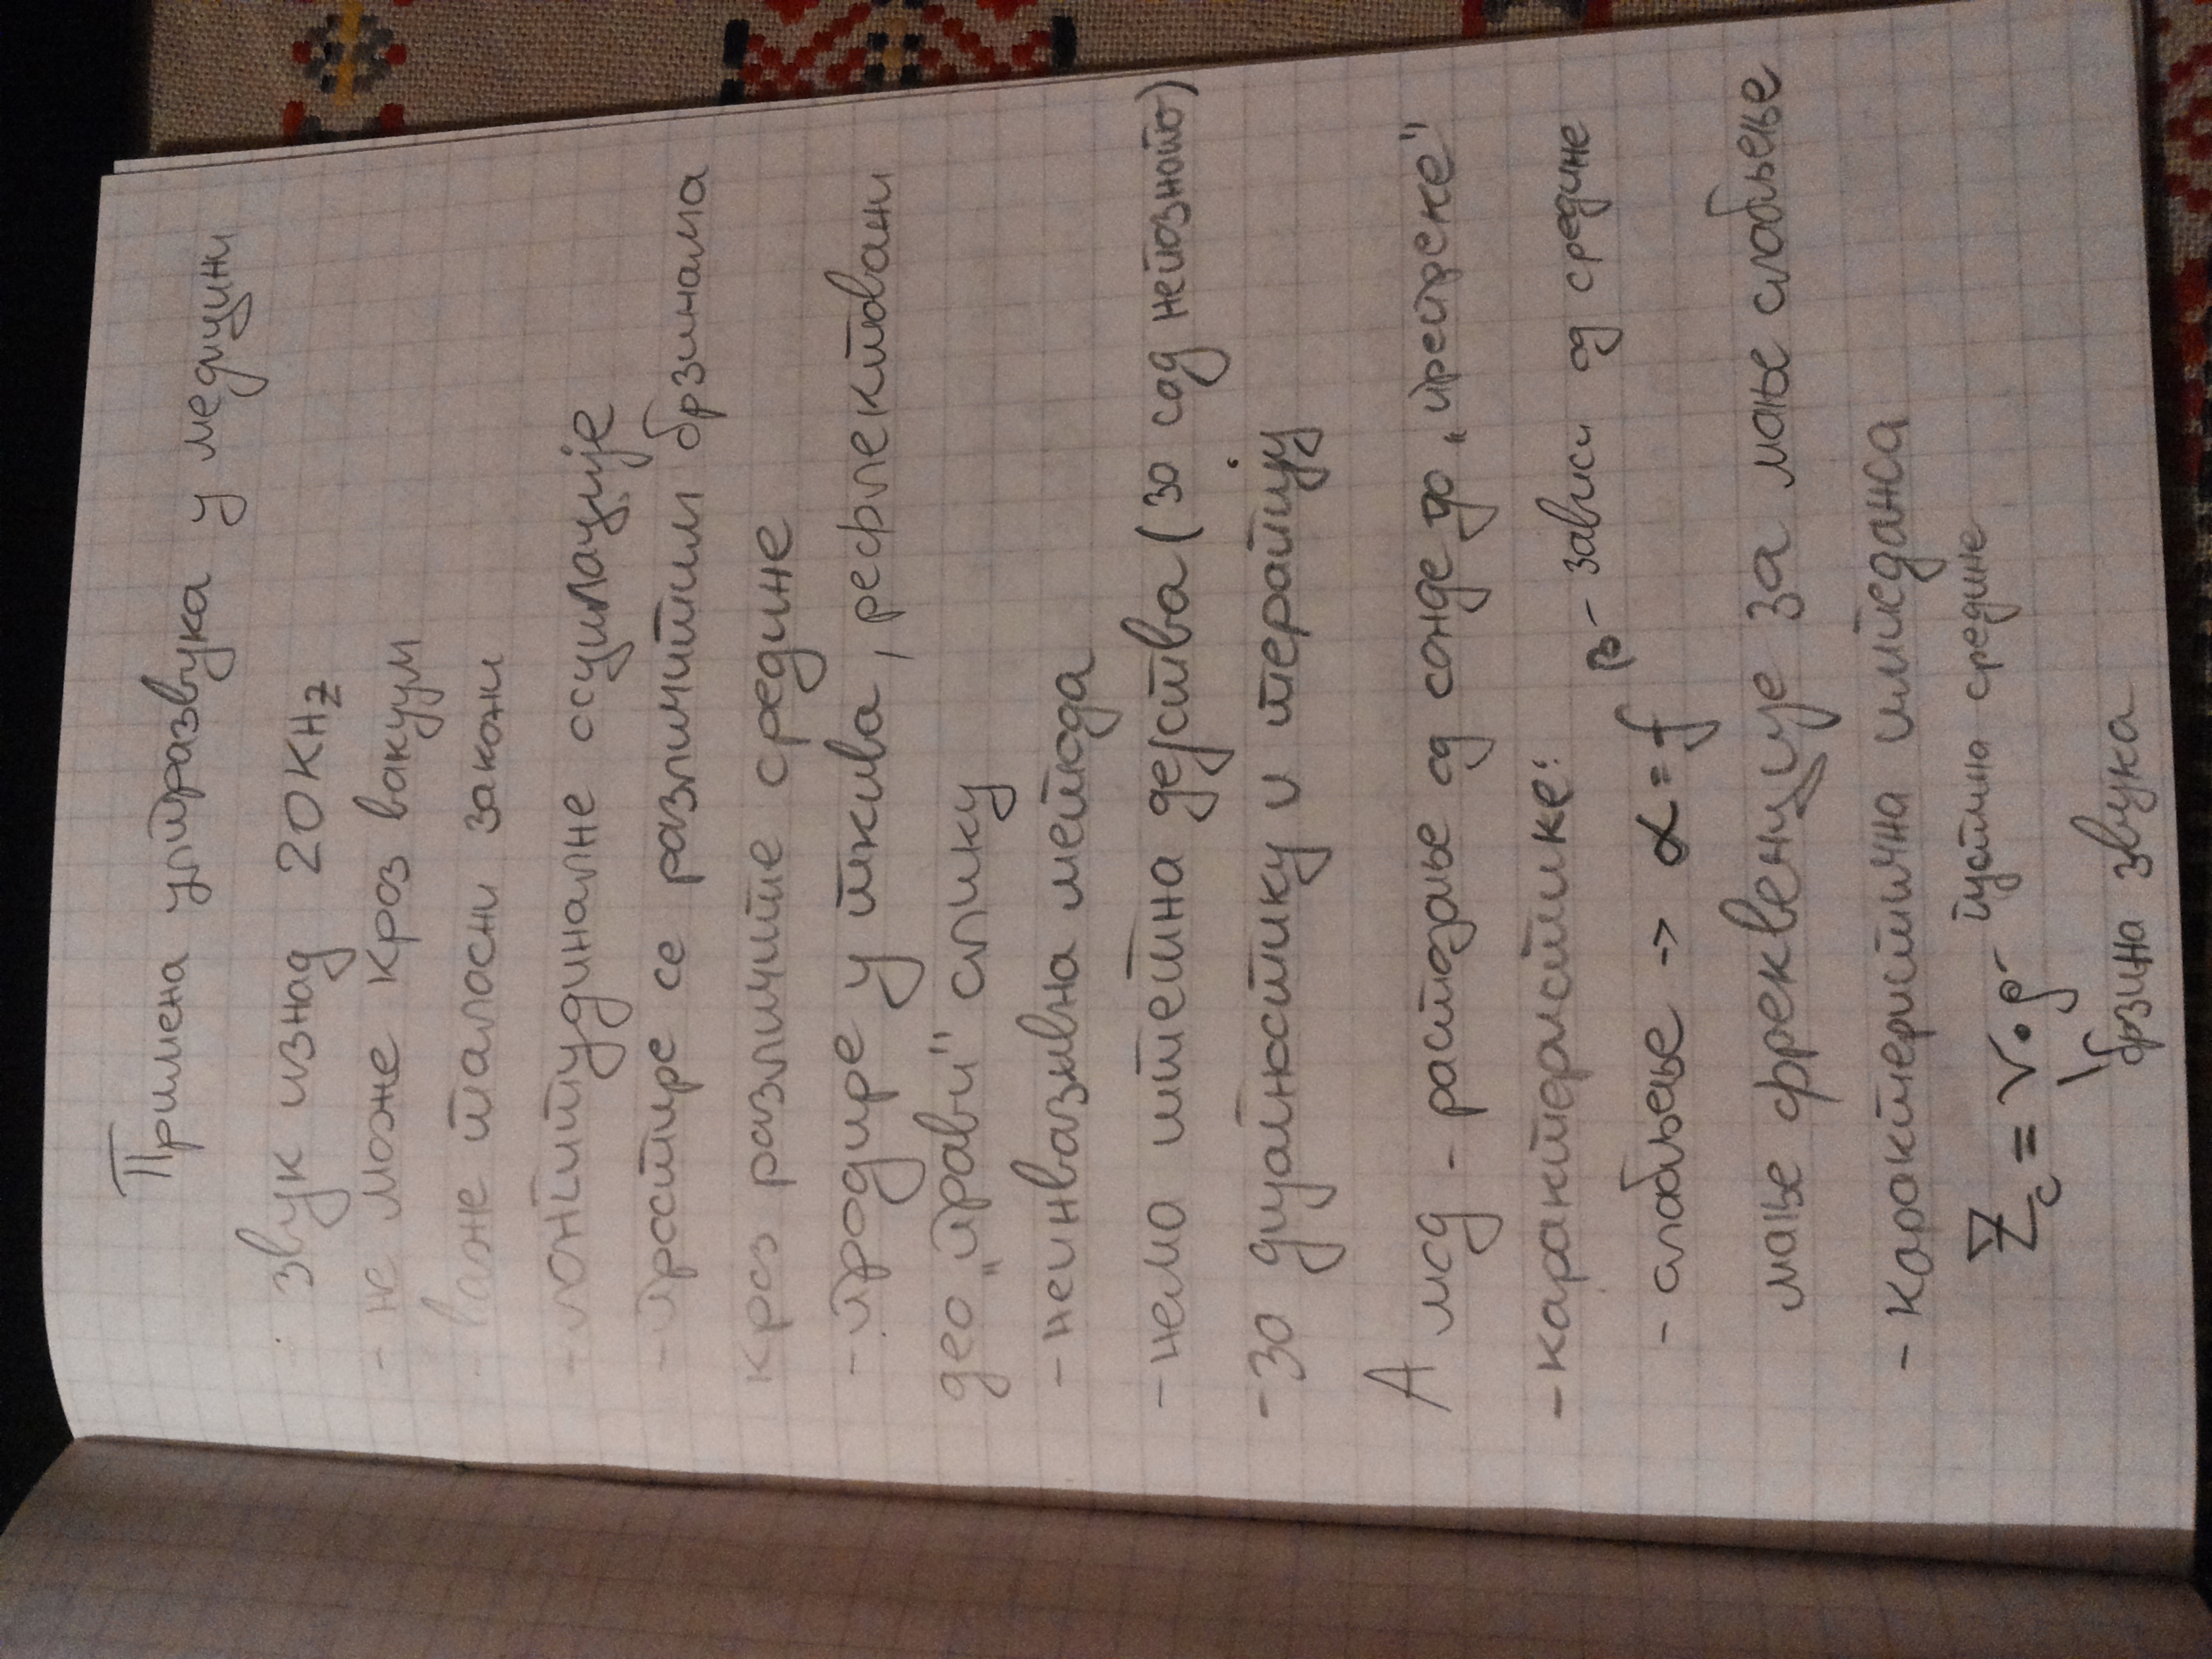 Примена ултразвука у медицини
- звук изнад 20KHz
- не може кроз вакуум
- важе таласни закони
- лонгитудиналне осцилације
- простире се различитим брзинама
кроз различите средине
- продире у ткива, рефлектовани
део „прави" слику
- неинвазивна метода
- нема штетна дејства (за сад непознато)
- за дијагностику и терапију
А мод - растојање од сонде до „препреке"
- карактеристике:
β - зависи од средине
- слабљење -> α = f
мање фреквенције за мање слабљење
- карактеристична импеданса
густина средине
Zc = v • ρ -
брзина звука